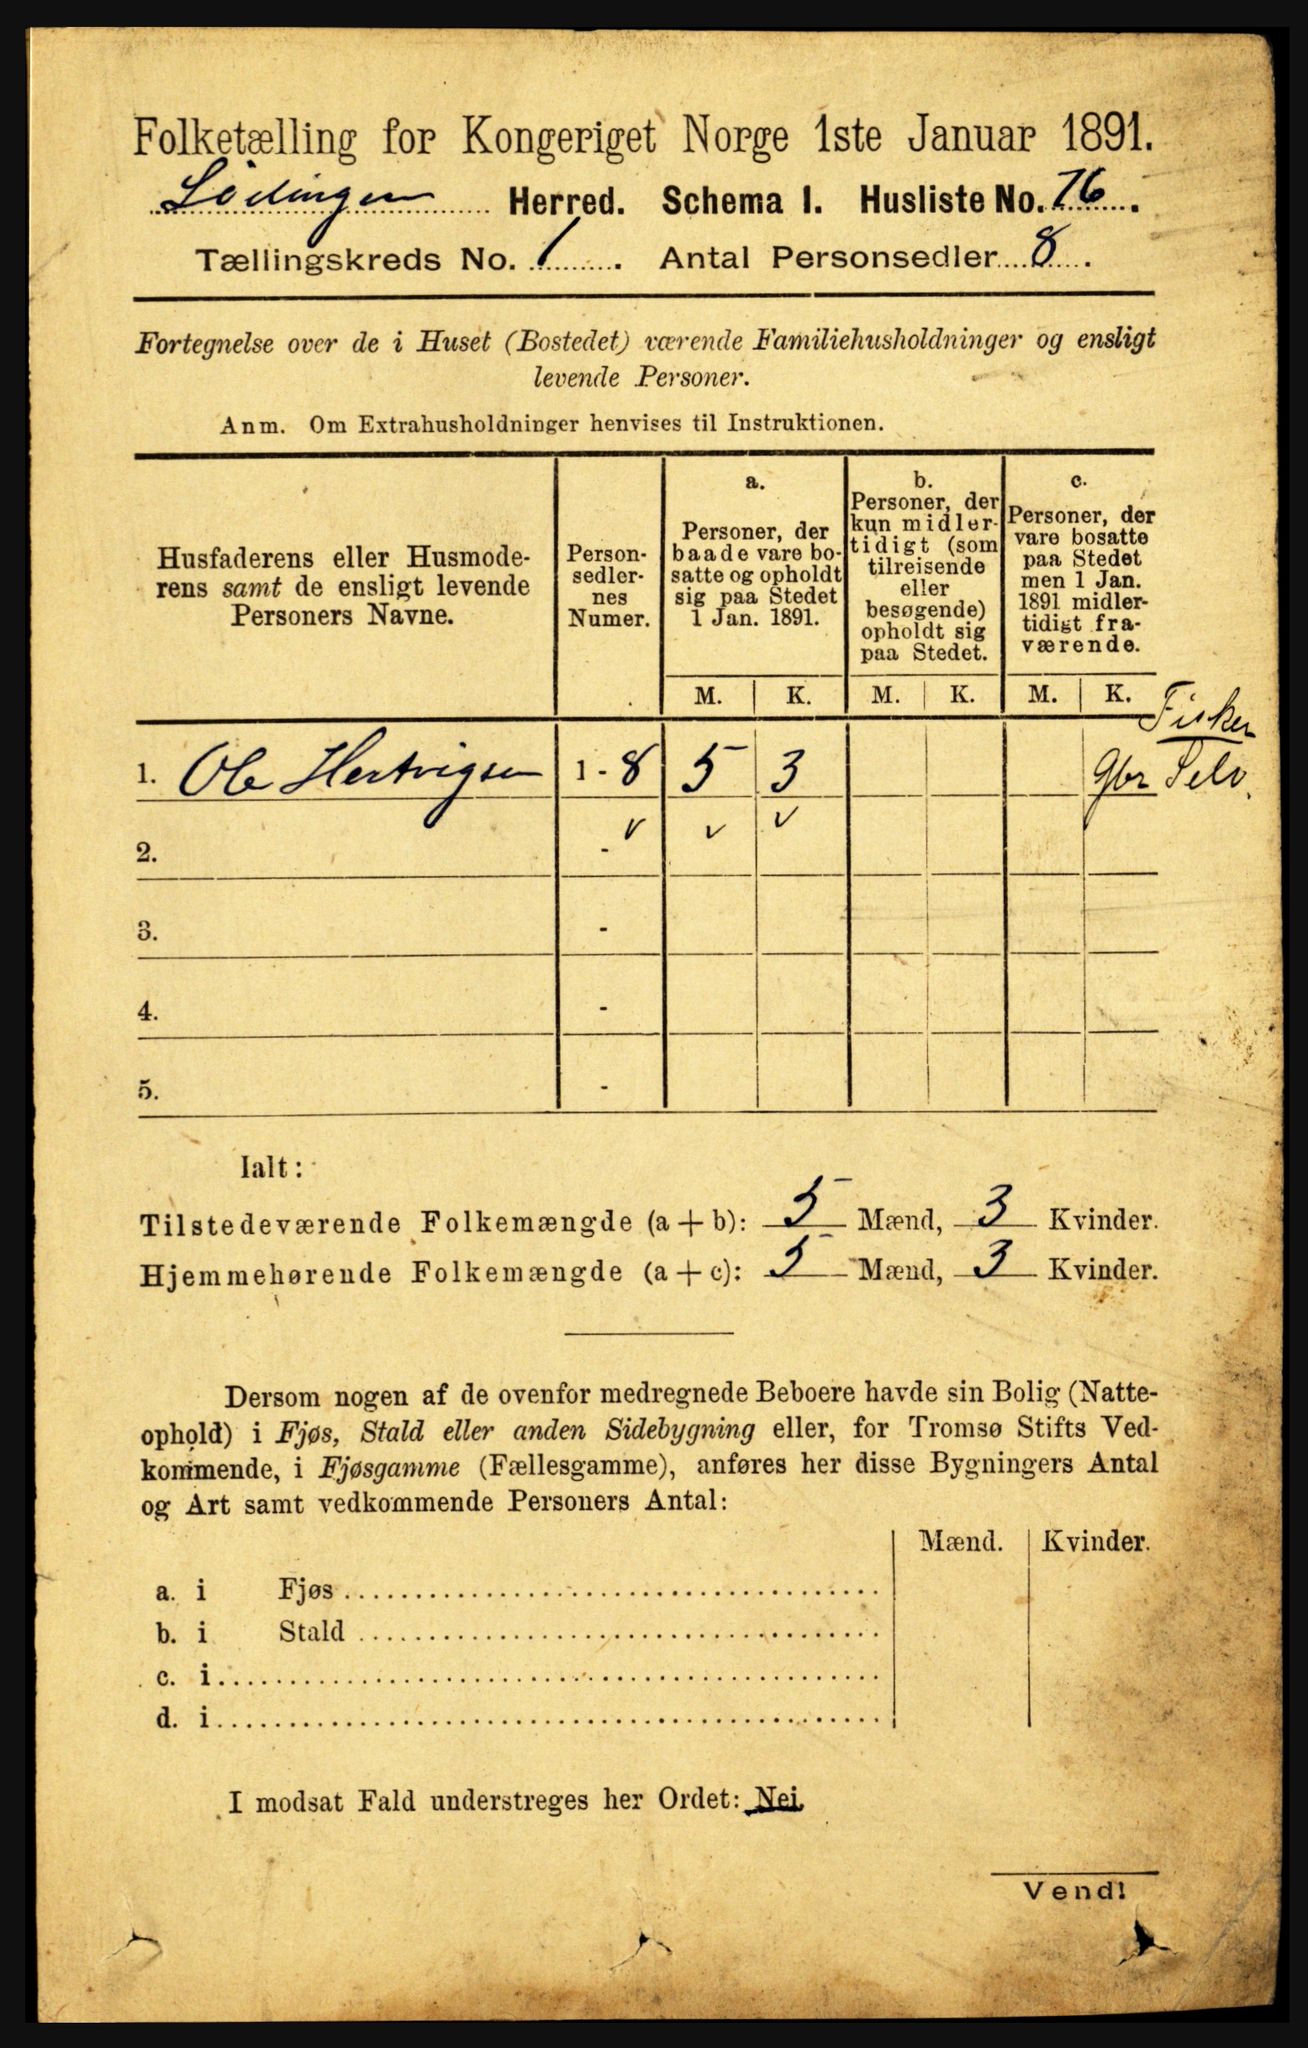 Folketælling for Kongeriget Norge 1ste Januar 1891.
Lødingen Herred. Schema I. Husliste No. 76.
Tællingskreds No. 1. Antal Personsedler 8.
Fortegnelse over de i Huset (Bostedet) værende Familiehusholdninger og ensligt
levende Personer.
Anm. Om Extrahusholdninger henvises til Instruktionen.
Husfaderens eller Husmode-
rens samt de ensligt levende
Personers Navne.
Person-
sedler-
nes
Numer.
a.
Personer, der
baade vare bo-
satte og opholdt
sig paa Stedet
1 Jan. 1891.
b.
Personer, der
kun midler-
tidigt (som
tilreisende
eller
besøgende)
opholdt sig
paa Stedet.
c.
Personer, der
vare bosatte
paa Stedet
men 1 Jan.
1891 midler-
tidigt fra-
værende.
M. K. M. K. M. K.
Fisker
1. Ole Hertvigsen 1 - 8 5 3 Gbr Selv.
2. - v v v
3. -
4. -
5. -
Ialt:
Tilstedeværende Folkemængde (a + b): 5 Mænd, 3 Kvinder.
Hjemmehørende Folkemængde (a + c): 5 Mænd, 3 Kvinder.
Dersom nogen af de ovenfor medregnede Beboere havde sin Bolig (Natte-
ophold) i Fjøs, Stald eller anden Sidebygning eller, for Tromsø Stifts Ved-
kommende, i Fjøsgamme (Fællesgamme), anføres her disse Bygningers Antal
og Art samt vedkommende Personers Antal:
Mænd. Kvinder.
a. i Fjøs
b. i Stald
c. i
d. i
I modsat Fald understreges her Ordet: Nei.
Vend!